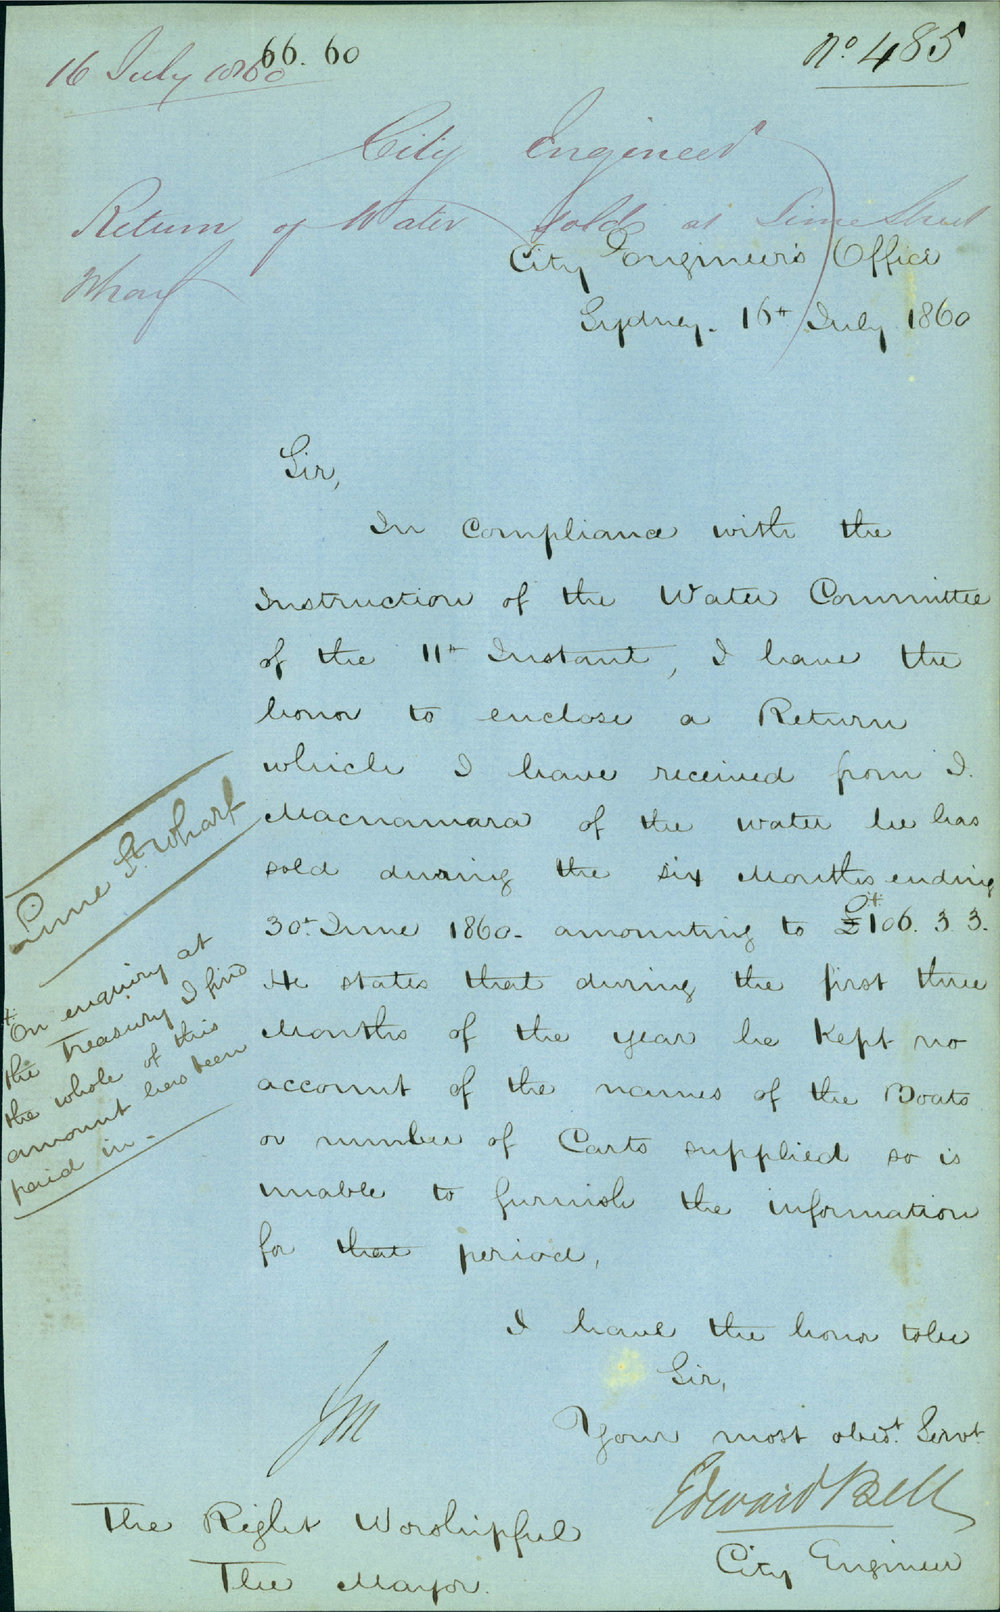 16 July 1860
66. 60
No. 485
City Engineer
Return of Water sold at Lime Street
Wharf
City Engineer's Office
Sydney. 16th July 1860
Sir,
In compliance with the
Instruction of the Water Committee
of the 11th Instant, I have the
honor to enclose a Return
which I have received from J.
Macnamara of the water he has
sold during the six Months ending
30th June 1860. amounting to £106. 3. 3.
He states that during the first three
Months of the year he kept no
account of the names of the Boats
or number of Carts supplied so is
unable to furnish the information
for that period,
I have the honor to be
Sir,
Your most obedt. Servt.
Edward Bell
City Engineer
JM
The Right Worshipful
The Mayor.
Lime St Wharf
+ On enquiry at
the Treasury I find
the whole of this
amount has been
paid in.